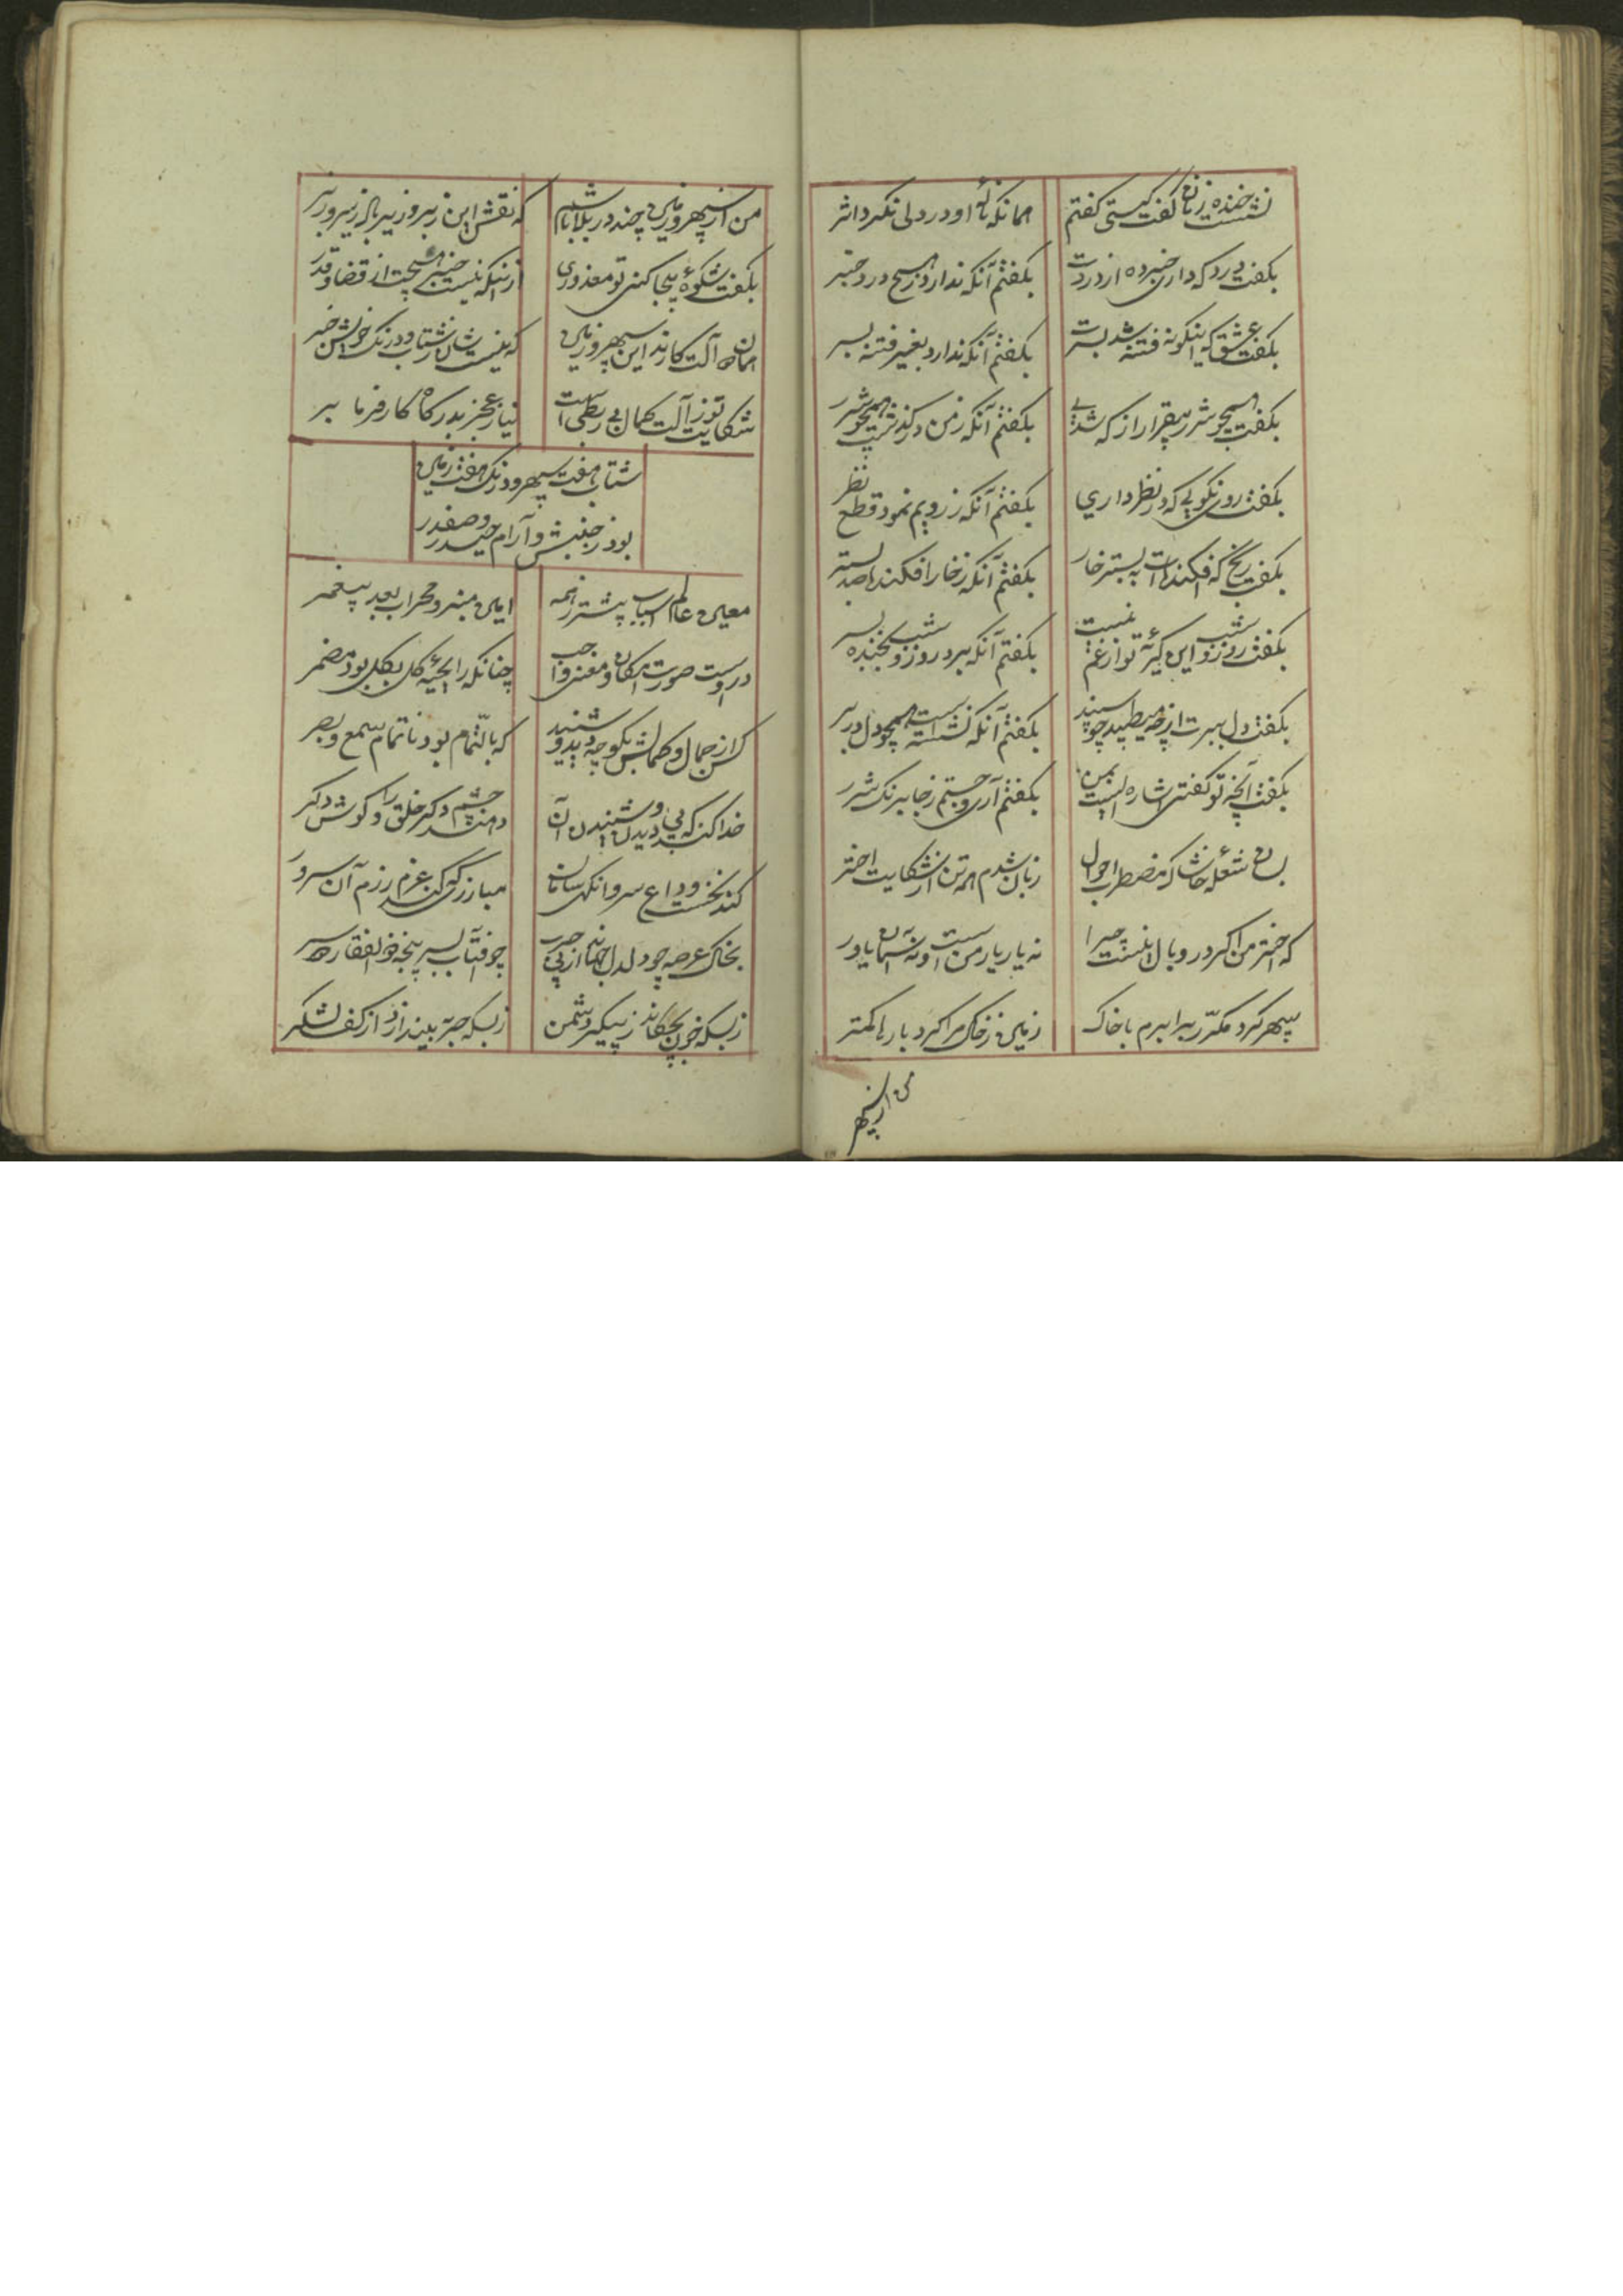 نشست خنده زنان گفت کیستی گفتم
همانکه نالهٔ او در دلی نکرد اثر
بگفت درد که داری خبر ده از دردت
بگفتم آنکه ندارد ز هیچ درد خبر
بگفت عشق که اینگونه فتنه شد بسرت
بگفتم آنکه ندارد بغیر فتنه بسر
بگفت همچو شرر بیقرار از که شدی
بگفتم آنکه ز من درگذشت همچو شرر
بگفت روی نکویی که در نظر داری
بگفتم آنکه ز رویم نمود قطع نظر
بگفت رنج که افکنده‌ات به بستر خار
بگفتم آنکه ز خار افکند بصد بستر
بگفت روز و شب این گریهٔ تو از غم کیست
بگفتم آنکه برد روز و شب بخنده بسر
بگفت دل ببرت از چه میطپد چو سپند
بگفتم آنکه نشسته است همچو دل در بر
بگفت آنچه تو گفتی اشاره ایست بمن
بگفتم آری و جستم ز جا برنک شرر
بسان شعلهٔ خاشاک مضطرب احوال
زبان شدم همه تن از شکایت اختر
که اختر من اگر در وبال نیست چرا
نه یار یار من است و نه آسمان یاور
سپهر کرد مکرّر برابرم با خاک
زمین ز خاک مرا کرد بارها کمتر
من از سپهر
من از سپهر و زمین چند در بلا باشم
که نقش این ز بر و زیر باد زیر و زبر
بگفت شکوهٔ بیجا کنی تو معذوری
از آنکه نیست خبر هیچت از قضا و قدر
همان آلت کارند این سپهر و زمین
که نیست شان ز شتاب و درنک خویش خبر
شکایت تو ز آلت کمال بی ربطی است
نیاز عجز بدرگاه کارفرما بر
شتاب هفت سپهر و درنگ هفت زمین
بود ز جنبش و آرام حیدر و صفدر
معین عالم اسباب پیشتر ز همه
امین منبر و محراب بعد پیغمبر
در اوست صورت امکان و معنی واجب
چنانکه رایحهٔ گل بگل بود مضمر
کس از جمال و کمالش بگو چه دید و شنید
که بالتمام بود ناتمام سمع و بصر
خدا کند که پی دیدن و شنیدن آن
دهند چشم دگر خلق را و گوش دگر
کند نخست وداع سر و آنگهی سامان
مبارزی که کند عزم رزم آن سرور
بخاک عرصه چو دلدل جهاند از پی حرب
چو آفتاب بسر پنجه ذوالفقار دو سر
ز بسکه خون بچکاند ز پیکر دشمن
ز بسکه حربه بیندازد از کف لشکر